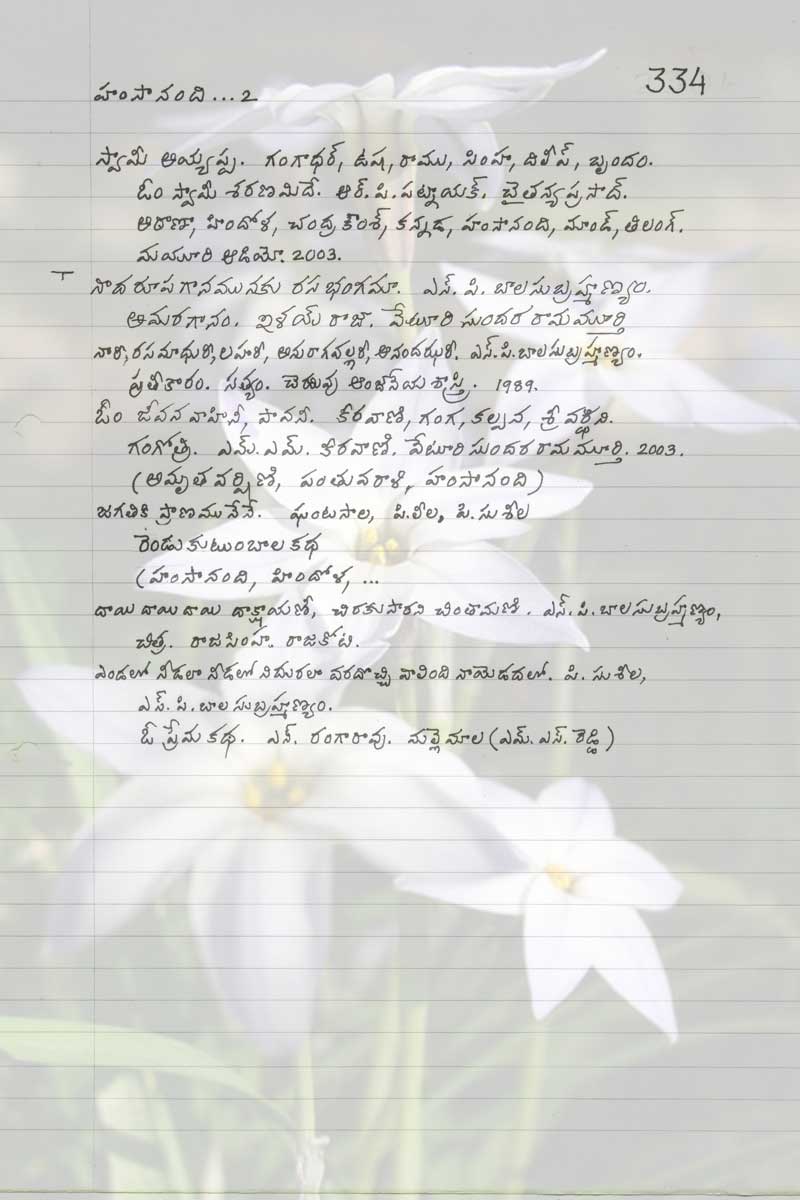 334
హంసానంది...2
స్వామి అయ్యప్ప. గంగాధర్, ఉష, రాము, సింహ, దిలీప్, బృందం.
ఓం స్వామి శరణమిదే. ఆర్.పి.పట్నాయక్. చైతన్యప్రసాద్.
అఠాణా, హిందోళ, చంద్రకౌంశ్, కన్నడ, హంసానంది, మాండ్, తిలంగ్.
మయూరి ఆడియో. 2003.
T నాదరూపగానమునకు రసభంగమా. ఎస్.పి.బాలసుబ్రహ్మణ్యం.
అమరగానం. ఇళయ్ రాజా. వేటూరి సుందరరామమూర్తి
నారీ, రసమాధురీ, లహరీ, అనురాగవల్లరీ, ఆనందఝరీ. ఎస్.పి.బాలసుబ్రహ్మణ్యం.
ప్రతీకారం. సత్యం. చెఱువు ఆంజనేయశాస్త్రి. 1989.
ఓం జీవనవాహినీ, పావనీ. కీరవాణి, గంగ, కల్పన, శ్రీవర్ధిని.
గంగోత్రి. ఎమ్.ఎమ్.కీరవాణి. వేటూరి సుందరరామమూర్తి. 2003.
(అమృతవర్షిణి, పంతువరాళి, హంసానంది)
జగతికి ప్రాణము నేనే. ఘంటసాల, పి.లీల, పి.సుశీల
రెండు కుటుంబాల కథ
(హంసానంది, హిందోళ, ...
దాయి దాయి దాయి దాక్షాయణీ, చిరకుసారని చింతామణి. ఎస్.పి.బాలసుబ్రహ్మణ్యం,
చిత్ర. రాజసింహ. రాజకోటి.
ఎండలో నీడలా నీడలో నిదురలా వరదొచ్చి వాలింది నాయెడదలో. పి.సుశీల,
ఎస్.పి.బాలసుబ్రహ్మణ్యం.
ఓ ప్రేమ కథ. ఎన్. రంగారావు. మల్లెమాల (ఎమ్.ఎస్.రెడ్డి)